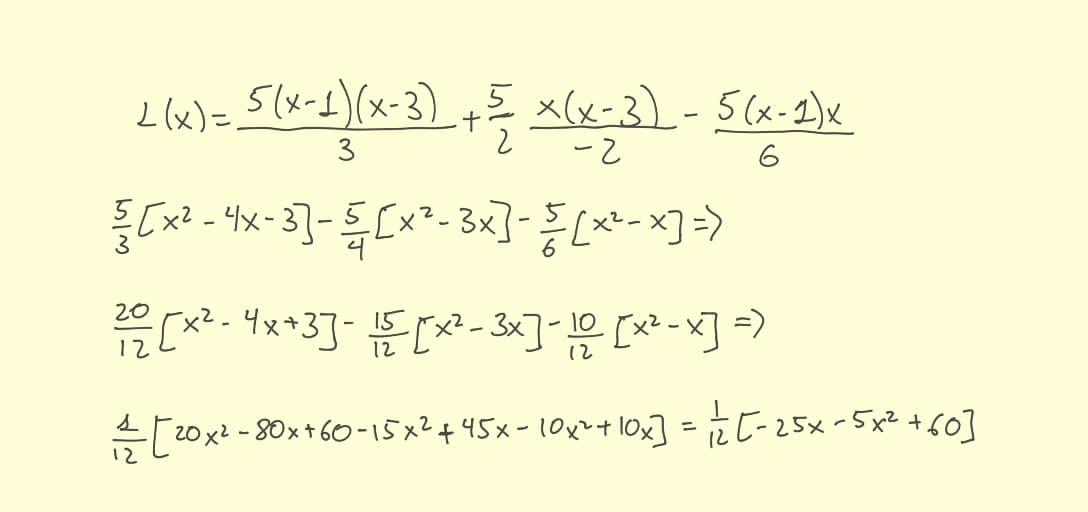 L(x) = \frac{5(x-1)(x-3)}{3} + \frac{5}{2} \frac{x(x-3)}{-2} - \frac{5(x-1)x}{6}
\frac{5}{3} [x^2 - 4x - 3] - \frac{5}{4} [x^2 - 3x] - \frac{5}{6} [x^2 - x] =>
\frac{20}{12} [x^2 - 4x + 3] - \frac{15}{12} [x^2 - 3x] - \frac{10}{12} [x^2 - x] =>
\frac{1}{12} [20x^2 - 80x + 60 - 15x^2 + 45x - 10x^2 + 10x] = \frac{1}{12} [-25x - 5x^2 + 60]